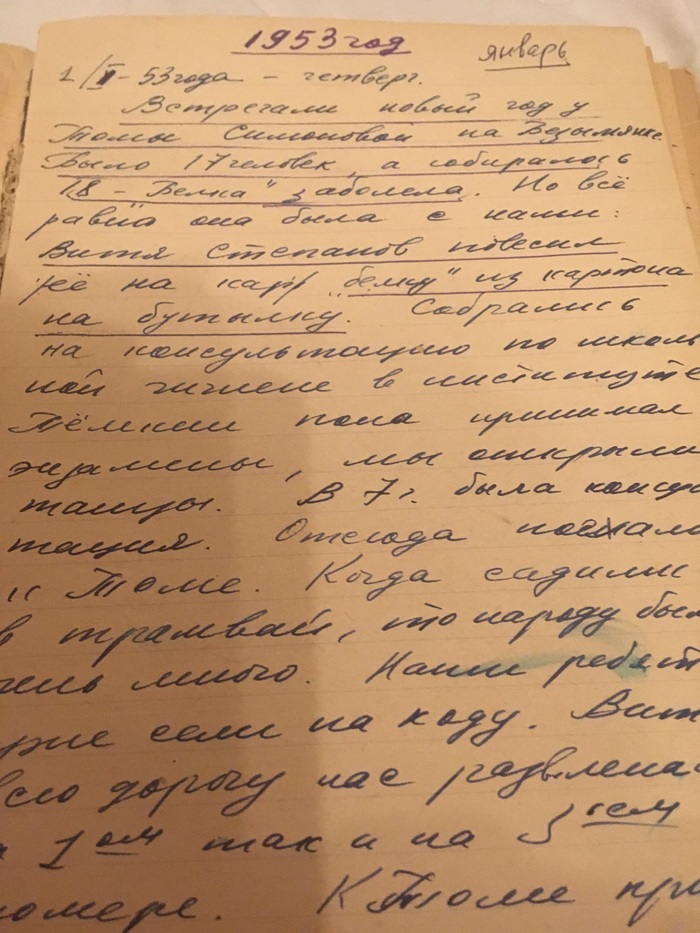 1953 год
январь
1/I - 53 года - четверг.
Встречали новый год у
Томы Симоновой на Безымянке
Было 17 человек, а собиралось
18 - "Белка" заболела. Но всё
равно она была с нами:
Витя Степанов повесил
её на "белку" из картона
на бутылку. Собрались
на консультацию по школь
ной гигиене в институте
Тёмкин пока принимал
экзамены, мы открыли
танцы. В 7 г. была консул
тация. Отсюда поехали
к Томе. Когда садили
в трамвай, то народу был
чень много. Наши ребят
рые сели на ходу. Вит
всю дорогу нас развлека
1ом так и на 3ем
номере. К Томе при